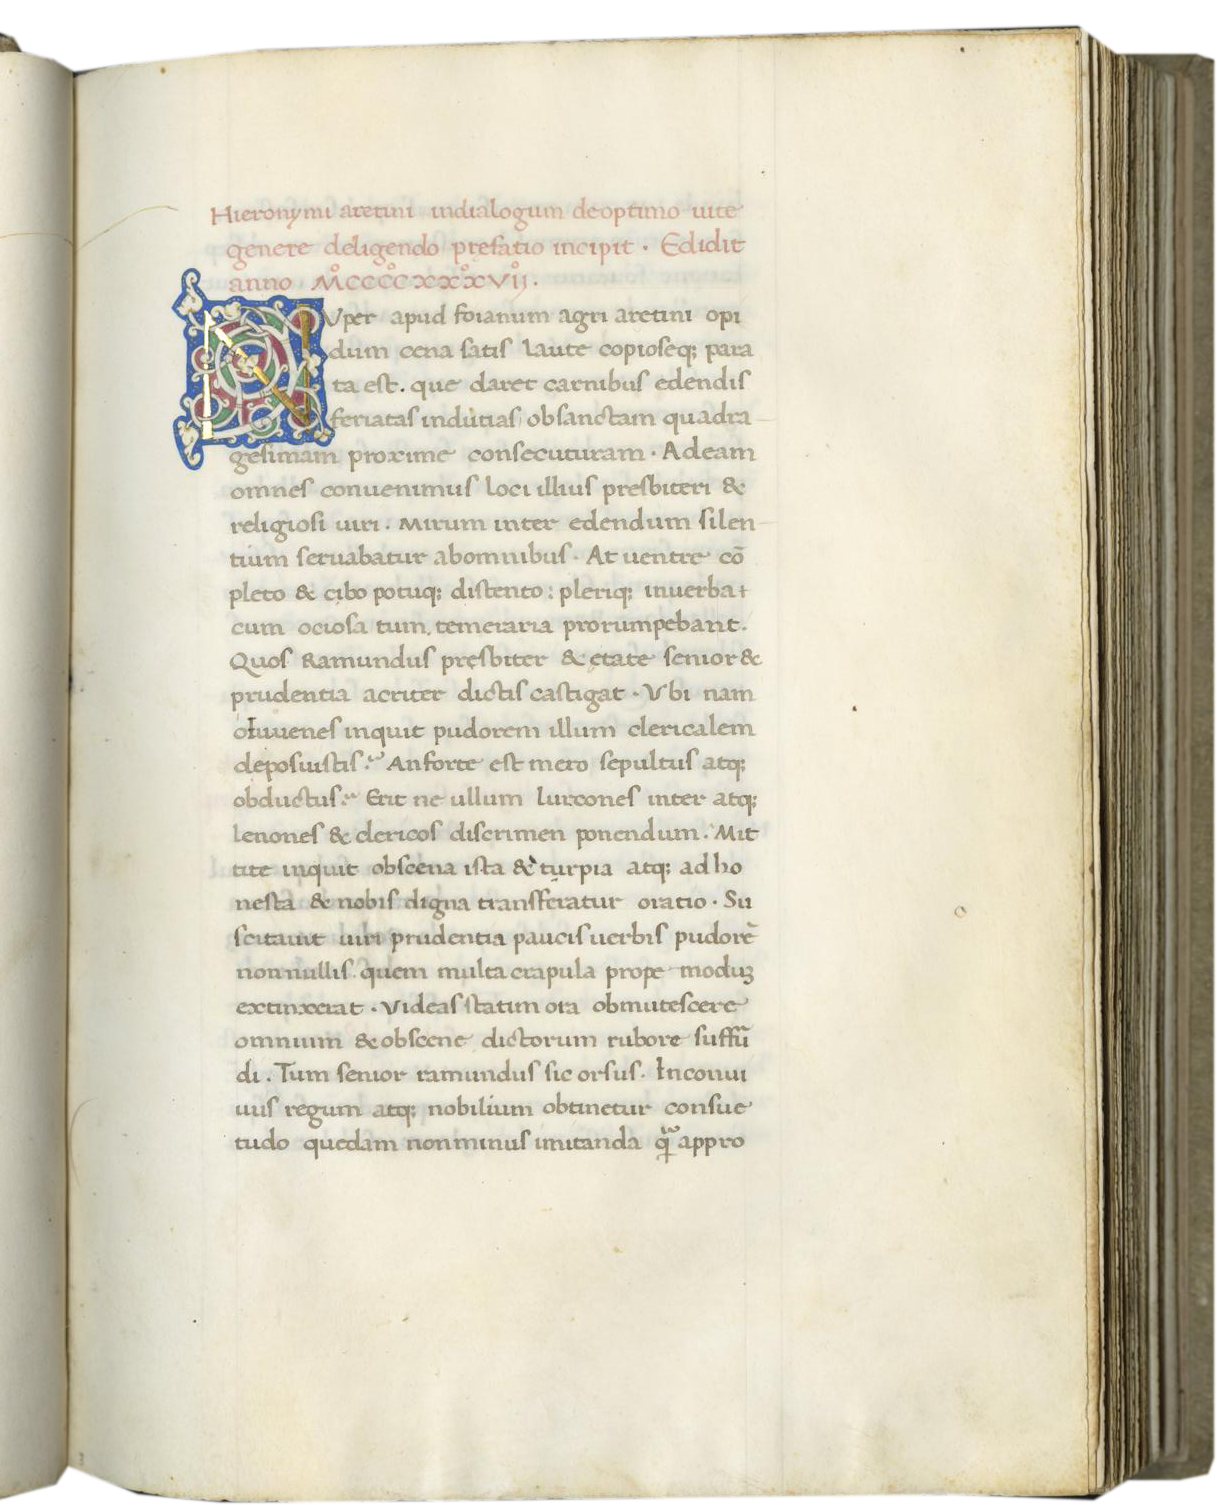 Hieronymi aretini indialogum deoptimo uite
genere deligendo prefatio incipit · Edidit
anno M̊CCCC̊XXX̊VII̊ ·
NVper apud foianum agri aretini opi
dum cena satis laute copioseq; para
ta est. que daret carnibus edendis
feriatas indutias obsanctam quadra
gesimam proxime consecuturam · Adeam
omnes conuenimus loci illius presbiteri &
religiosi uiri . Mirum inter edendum silen
tium seruabatur abomnibus · At uentre cō
pleto & cibo potuq; distento : pleriq; inuerba t
cum ociosa tum, temeraria prorumpebant.
Quos Ramundus presbiter & etate senior &
prudentia acriter dictis castigat · Vbi nam
oIuuenes inquit pudorem illum clericalem
deposuistis? Anforte est mero sepultus atq;
obductus? Erit ne ullum lurcones inter atq;
lenones & clericos discrimen ponendum . Mit
tite inquit obscena ista & turpia atq; adho
nesta & nobis digna transferatur oratio · Su
scitauit uiri prudentia paucis uerbis pudorē
nonnullis. quem multa crapula prope moduꝫ
extinxerat · Videas statim ora obmutescere
omnium & obscene dictorum rubore suffū
di . Tum senior ramundus sic orsus. Inconui
uiis regum atq; nobilium obtinetur consue
tudo quedam nonminus imitanda q̄ appro